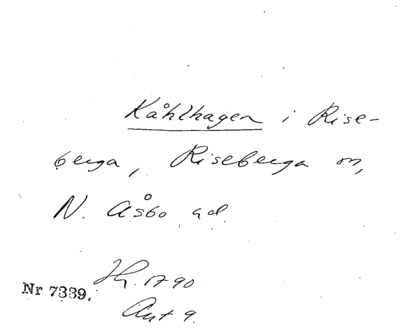 Kåhlhagen i Rise-
berga, Riseberga sn,
N. Åsbo hd.
Nr 7339.
Hy. 1790
Akt 9.